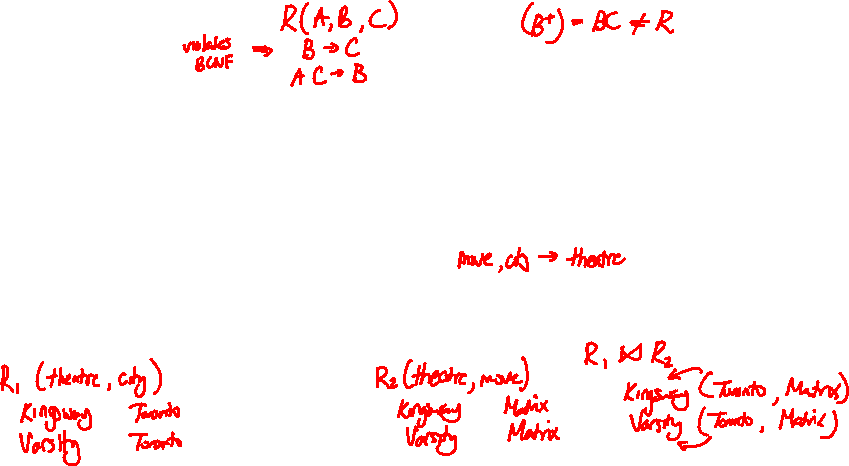 R(A, B, C)
violates BCNF ⇒ B → C
AC → B
(B⁺) = BC ≠ R
movie, city → theatre
R₁ (theatre, city)
Kingsway Toronto
Varsity Toronto
R₂ (theatre, movie)
Kingsway Matrix
Varsity Matrix
R₁ ⋈ R₂
Kingsway (Toronto, Matrix)
Varsity (Toronto, Matrix)